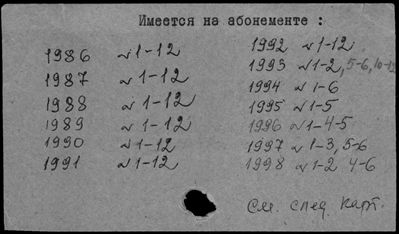 Имеется на абонементе :
1986 № 1-12
1987 № 1-12
1988 № 1-12
1989 № 1-12
1990 № 1-12
1991 № 1-12
1992 № 1-12
1993 № 1-2, 5-6, 10-12
1994 № 1-6
1995 № 1-5
1996 № 1-4-5
1997 № 1-3, 5-6
1998 № 1-2 4-6
См. след. карт.